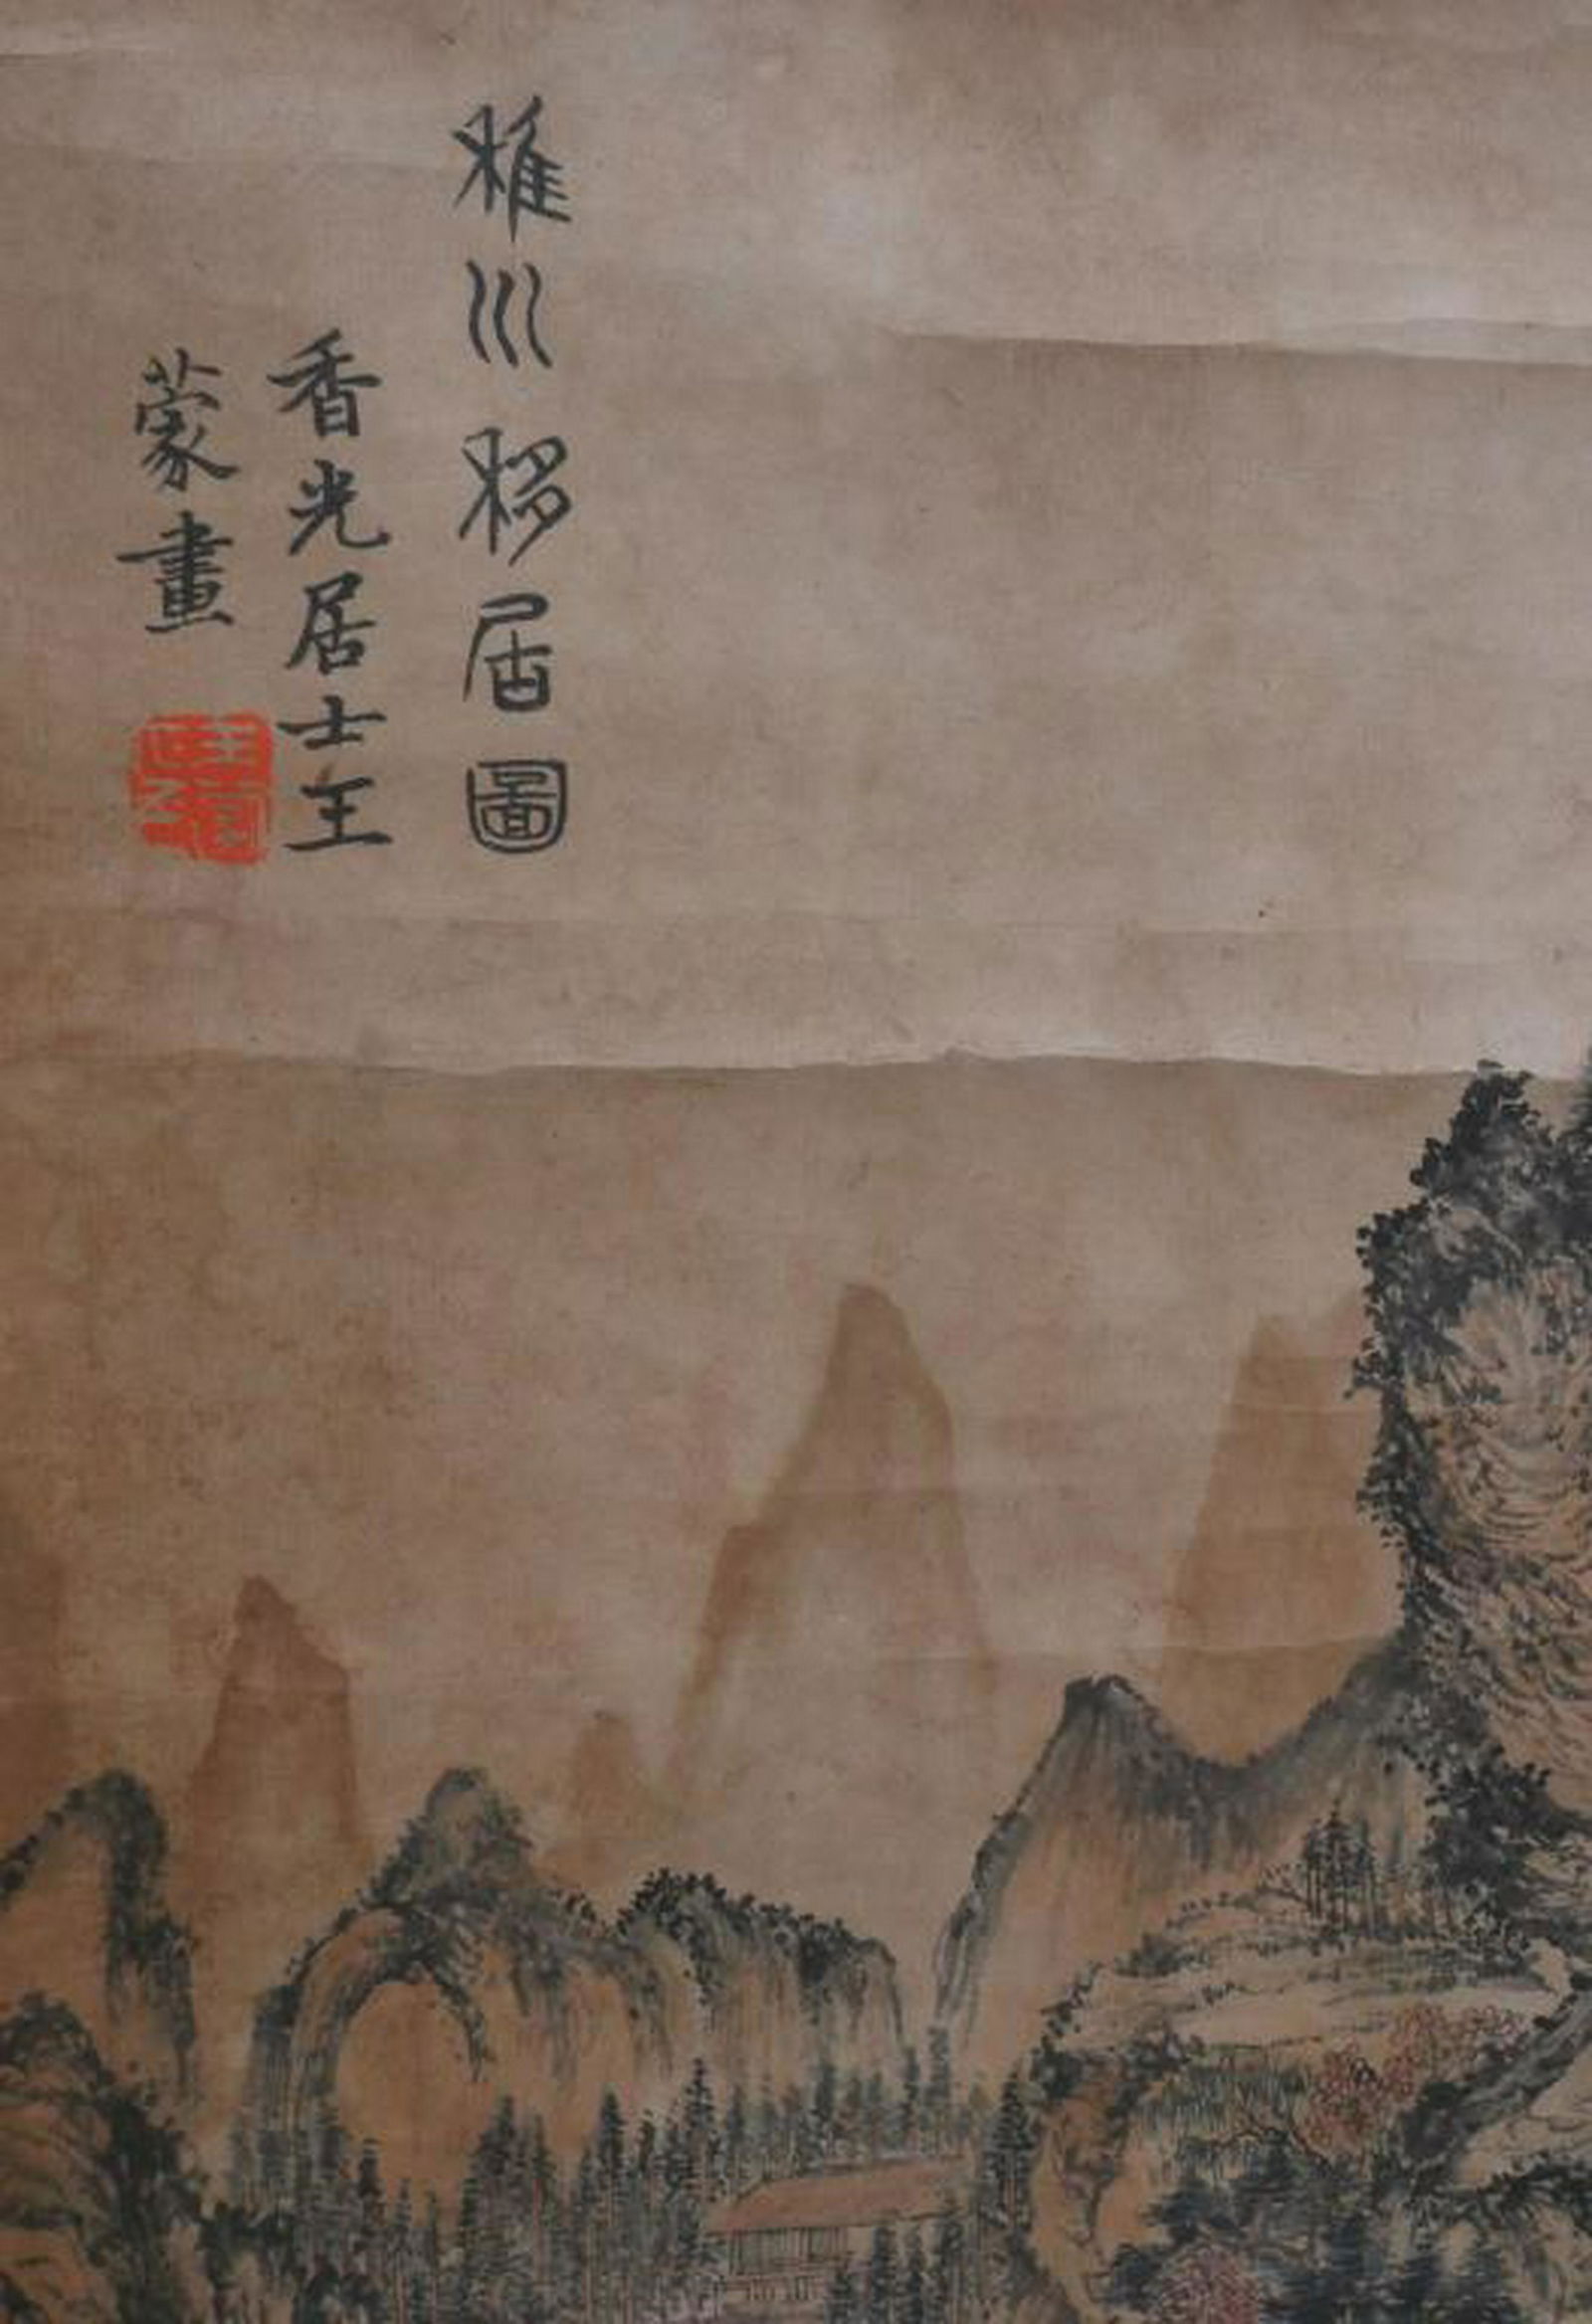 稚川移居圖
香光居士王
蒙畫